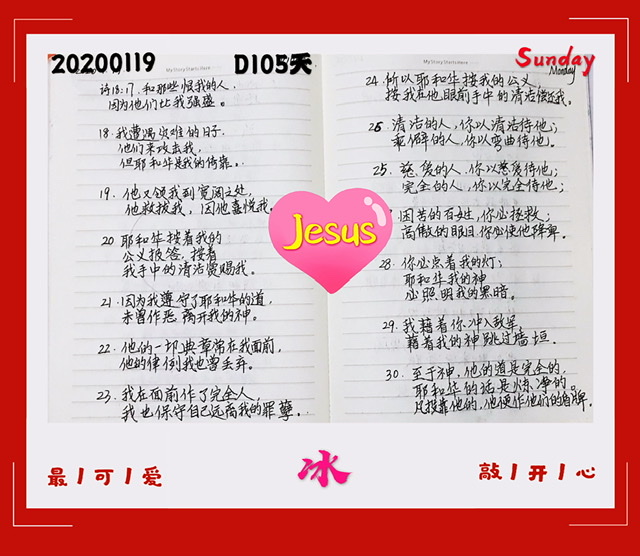 20200119
D105天
Sunday
My Story Starts Here
诗18:17.和那些恨我的人,
因为他们比我强盛。
18.我遭遇灾难的日子,
他们来攻击我,
但耶和华是我的倚靠.
19.他又领我到宽阔之处,
他救拔我,因他喜悦我.
20 耶和华按着我的
公义报答,按着
我手中的清洁赏赐我.
21.因为我遵守了耶和华的道,
未曾作恶离开我的神。
22.他的一切典章常在我面前,
他的律例我也曾丢弃。
23.我在面前作了完全人,
我也保守自己远离我的罪孽.
My Story Starts Here
Monday
24.所以耶和华按我的公义,
按我在他眼前手中的清洁偿还我.
25.清洁的人,你以清洁待他;
乖僻的人,你以弯曲待他.
25.慈爱的人,你以慈爱待他;
完全的人,你以完全待他;
困苦的百姓,你必拯救;
高傲的眼目你必使他降卑.
28.你必点着我的灯;
耶和华我的神
必照明我的黑暗.
29.我藉着你冲入敌军
藉着我的神跳过墙垣.
30.至于神,他的道是完全的,
耶和华的话是炼净的.
凡投靠他的,他便作他们的盾牌.
Jesus
最|可|爱
冰
敲|开|心